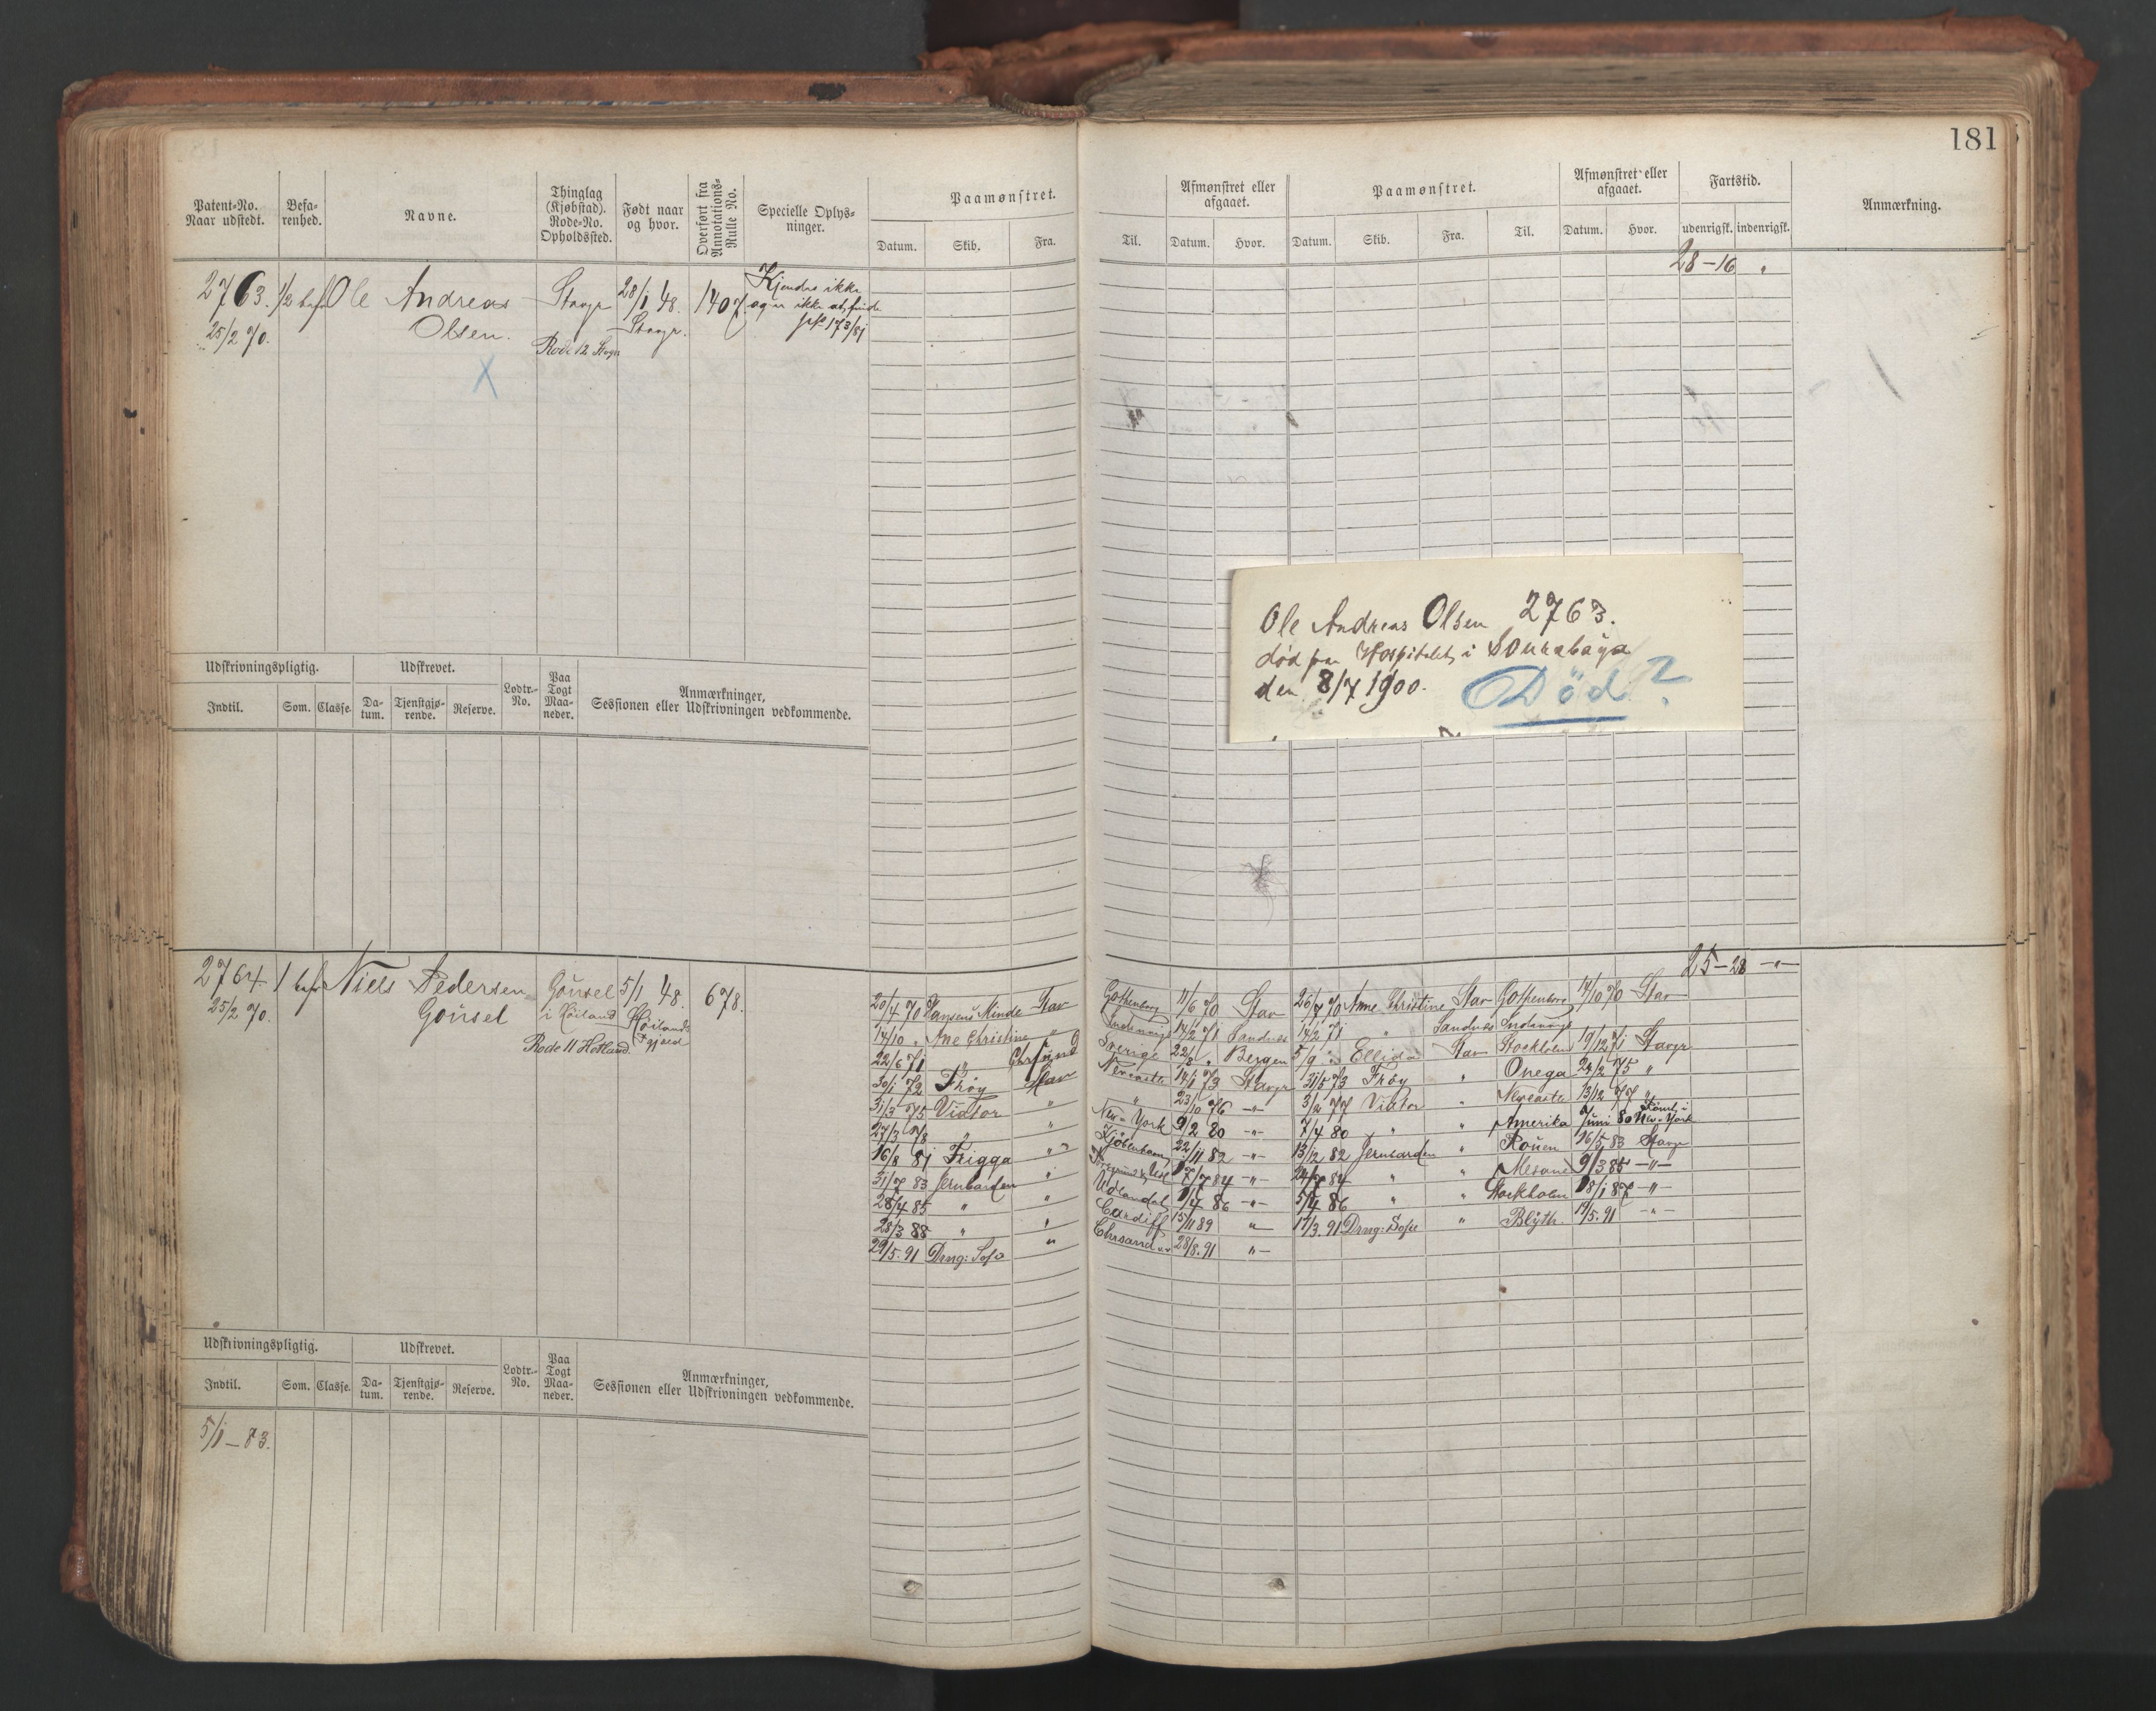 181
Patent=No. Naar udstedt. Befa=renhed. Navne. Thinglag (Kjøbstad). Rode=No. Opholdssted. Født naar og hvor. Overført fra Annotations=Rulle No. Specielle Oplys=ninger. Paamønstret.
Datum. Skib. Fra.
Afmønstret eller afgaaet. Paamønstret. Afmønstret eller afgaaet. Fartstid. Anmærkning.
Til. Datum. Hvor. Datum. Skib. Fra. Til. Datum. Hvor. udenrigsk. indenrigsk.
28-16 "
2763. 1/2 bef Ole Andreas Stavgr 28/1 48. 1407. Kjendes ikke
25/2 70. Olsen. Stavgr. og er ikke at finde
Rode 12 Stvgr 173/81
X
Ole Andreas Olsen 2763.
død paa Hospitalet i Sourabaya
den 8/7 1900. Død?
Udskrivningspligtig. Udskrevet. Lodtr.=No. Paa Togt Maa=neder. Anmærkninger, Sessionen eller Udskrivningen vedkommende.
Indtil. Som. Classe. Da=tum. Tjenstgjø=rende. Reserve.
25-28 -"-
2764. 1 bef Niels Pedersen Gousel 5/1 48. 678.
25/2 70. Gousel i Høiland Høilands Gjæld
Rode 11 Hetland.
20/4 70 Hansens Minde Stav Gothenborg 11/6 70 Stav 26/7 70 Anne Christine Stav Gothenborg 14/10 70 Stav
14/10 " Ane Christine " Indenrigs 14/2 71 Sandnes 14/2 71 " Sandnes Indenrigs
22/6 71 " Chrsund Sverige 22/8 " Bergen 5/9 " Ellida Stav Stockholm 19/12 71 Stavgr
30/1 72 Frøy Stav Newcastle 14/1 73 Stavgr 31/5 73 Frøy " Onega 24/2 75 "
31/3 75 Viator " " 23/10 76 -"- 3/2 77 Viator " Newcastle 13/12 77 "
27/3 78 " " New-York 9/2 80 -"- 7/4 80 " " Amerika Juni 80 Rømt i New-York
16/8 81 Frigga " Kjøbenhavn 22/11 82 -"- 13/12 82 Jernbarden " Rouen 16/5 83 Stavgr
31/7 83 Jernbarden " 17/7 84 -"- 24/7 84 " " 9/3 85 -"-
28/4 85 " " Udlandet 1/4 86 -"- 5/4 86 " " Stockholm 18/1 87 -"-
28/3 88 " " Cardiff 15/11 89 " 17/3. 91 Drng: Sofie " Blyth. 17/5. 91 -"-
29/5. 91 Drng: Sofie " Chrsand 28/8. 91 "-
Udskrivningspligtig. Udskrevet. Lodtr.=No. Paa Togt Maa=neder. Anmærkninger, Sessionen eller Udskrivningen vedkommende.
Indtil. Som. Classe. Da=tum. Tjenstgjø=rende. Reserve.
5/1-83.